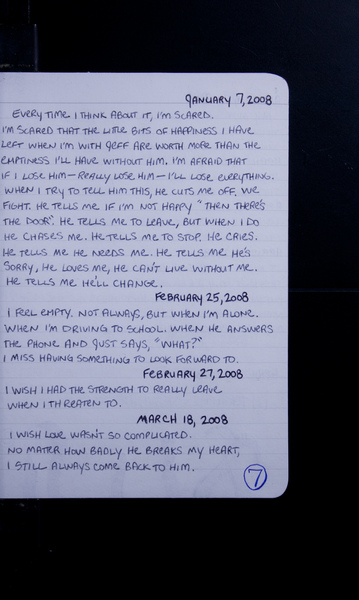 JANUARY 7, 2008
EVERY TIME I THINK ABOUT IT, I'M SCARED.
I'M SCARED THAT THE LITTLE BITS OF HAPPINESS I HAVE
LEFT WHEN I'M WITH JEFF ARE WORTH MORE THAN THE
EMPTINESS I'LL HAVE WITHOUT HIM. I'M AFRAID THAT
IF I LOSE HIM—REALLY LOSE HIM—I'LL LOSE EVERYTHING.
WHEN I TRY TO TELL HIM THIS, HE CUTS ME OFF. WE
FIGHT. HE TELLS ME IF I'M NOT HAPPY "THEN THERE'S
THE DOOR". HE TELLS ME TO LEAVE, BUT WHEN I DO
HE CHASES ME. HE TELLS ME TO STOP. HE CRIES.
HE TELLS ME HE NEEDS ME. HE TELLS ME HE'S
SORRY, HE LOVES ME, HE CAN'T LIVE WITHOUT ME.
HE TELLS ME HE'LL CHANGE.
FEBRUARY 25, 2008
I FEEL EMPTY. NOT ALWAYS, BUT WHEN I'M ALONE.
WHEN I'M DRIVING TO SCHOOL. WHEN HE ANSWERS
THE PHONE AND JUST SAYS, "WHAT?"
I MISS HAVING SOMETHING TO LOOK FORWARD TO.
FEBRUARY 27, 2008
I WISH I HAD THE STRENGTH TO REALLY LEAVE
WHEN I THREATEN TO.
MARCH 18, 2008
I WISH LOVE WASN'T SO COMPLICATED.
NO MATER HOW BADLY HE BREAKS MY HEART,
I STILL ALWAYS COME BACK TO HIM.
7